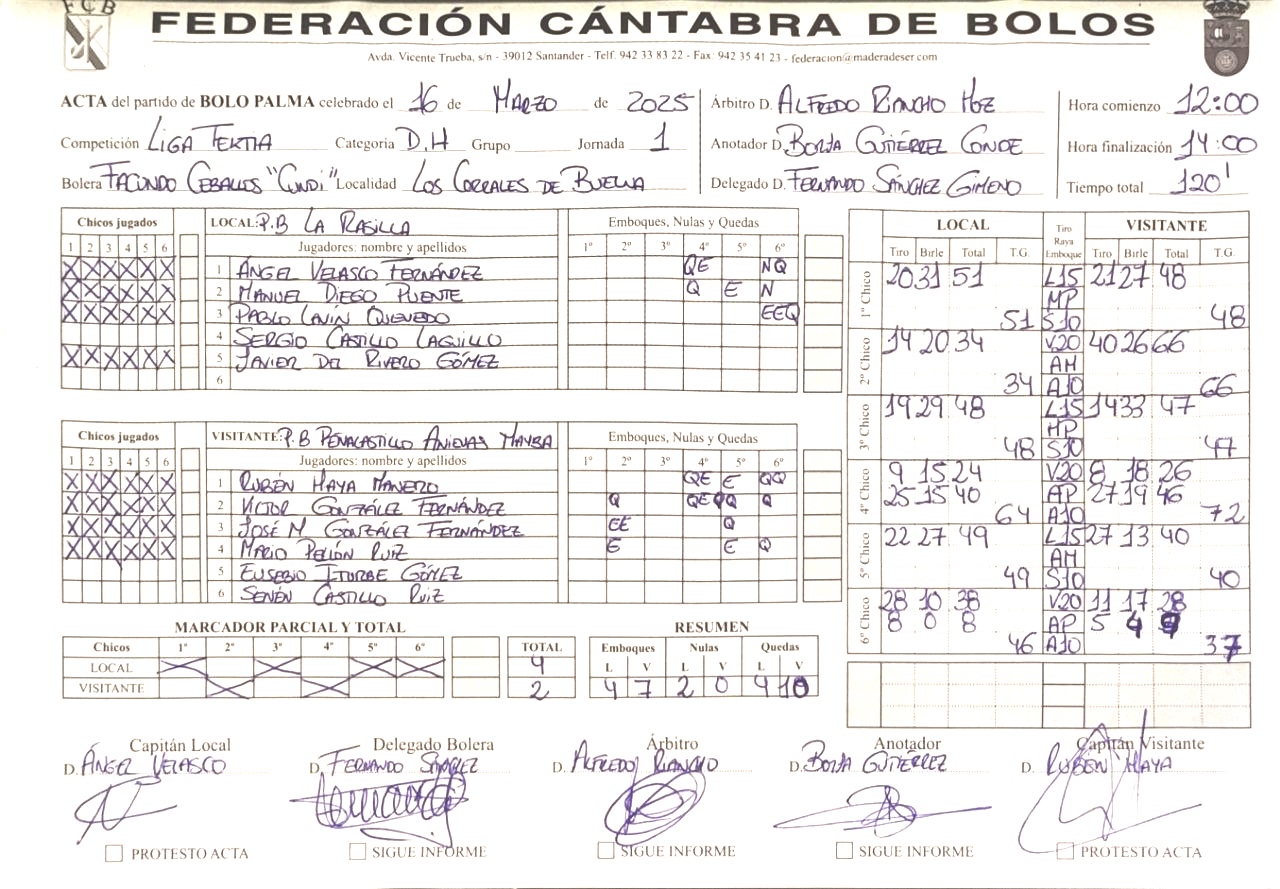 FCB
FEDERACIÓN CÁNTABRA DE BOLOS
Avda. Vicente Trueba, s/n - 39012 Santander - Telf. 942 33 83 22 - Fax: 942 35 41 23 - federacion@maderadeser.com
ACTA del partido de BOLO PALMA celebrado el 16 de MARZO de 2025 Árbitro D. ALFREDO RIANCHO HOZ Hora comienzo 12:00
Competición LIGA TERTIA Categoría D.H Grupo Jornada 1 Anotador D. BORJA GUTIÉRREZ CONDE Hora finalización 14:00
Bolera FACUNDO CEBALLOS "CUNDI" Localidad LOS CORRALES DE BUELNA Delegado D. FERNANDO SÁNCHEZ GIMENO Tiempo total 120'
Chicos jugados LOCAL: P.B LA RASILLA Emboques, Nulas y Quedas
1 2 3 4 5 6 Jugadores: nombre y apellidos 1º 2º 3º 4º 5º 6º
X X X X X X 1 ÁNGEL VELASCO FERNÁNDEZ QE NQ
X X X X X X 2 MANUEL DIEGO PUENTE Q E N
X X X X X X 3 PABLO LAVIN QUEVEDO EEQ
4 SERGIO CASTILLO LAGUILLO
X X X X X X 5 JAVIER DEL RIVERO GÓMEZ
6
Chicos jugados VISITANTE: P.B PEÑACASTILLO ANIEVAS MAYBA Emboques, Nulas y Quedas
1 2 3 4 5 6 Jugadores: nombre y apellidos 1º 2º 3º 4º 5º 6º
X X X X X X 1 RUBÉN HAYA MANERO QE E QQ
X X X X X X 2 VICTOR GONZÁLEZ FERNÁNDEZ Q QE QQ Q
X X X X X X 3 JOSÉ M. GONZÁLEZ FERNÁNDEZ EE Q
X X X X X X 4 MARIO PELLÓN RUIZ E E Q
5 EUSEBIO ITURBE GÓMEZ
6 SENÉN CASTILLO RUIZ
MARCADOR PARCIAL Y TOTAL
Chicos 1º 2º 3º 4º 5º 6º TOTAL
LOCAL X X X X 4
VISITANTE X X 2
RESUMEN
Emboques Nulas Quedas
L V L V L V
4 7 2 0 4 10
LOCAL Tiro Raya Emboque VISITANTE
Tiro Birle Total T.G. Tiro Birle Total T.G.
1º Chico 20 31 51 L15 21 27 48
MP
51 S10 48
2º Chico 14 20 34 V20 40 26 66
AM
34 A10 66
3º Chico 19 29 48 L15 14 33 47
MP
48 S10 47
4º Chico 9 15 24 V20 8 18 26
25 15 40 AP 27 19 46
64 A10 72
5º Chico 22 27 49 L15 27 13 40
AM
49 S10 40
6º Chico 28 10 38 V20 11 17 28
8 0 8 AP 5 4 9
46 A10 37
Capitán Local Delegado Bolera Árbitro Anotador Capitán Visitante
D. ÁNGEL VELASCO D. FERNANDO SÁNCHEZ D. ALFREDO RIANCHO D. BORJA GUTIERREZ D. RUBÉN HAYA
PROTESTO ACTA SIGUE INFORME SIGUE INFORME SIGUE INFORME PROTESTO ACTA